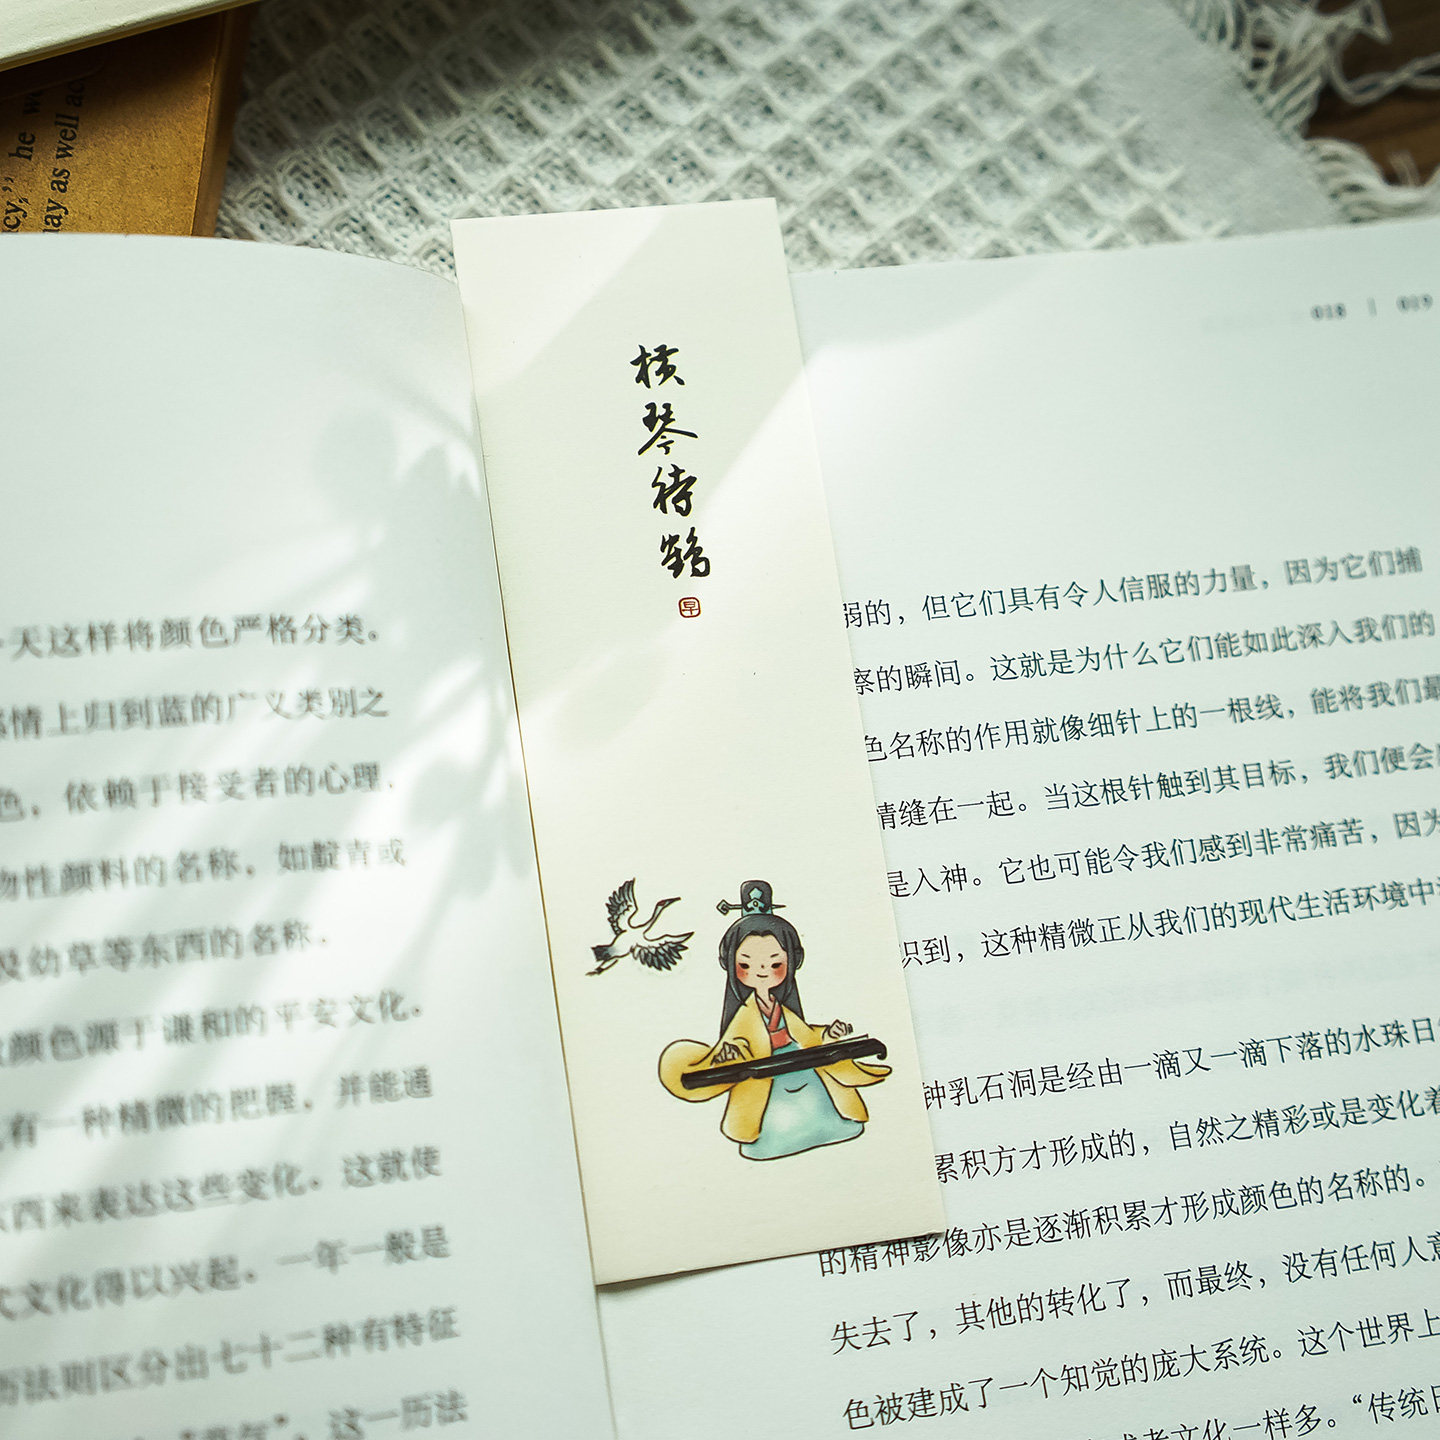 cy," he w
may as well ac
018 | 019
横琴待鹤
天这样将颜色严格分类。
情上归到蓝的广义类别之
色，依赖于接受者的心理，
物性颜料的名称，如靛青或
及幼草等东西的名称，
颜色源于谦和的平安文化。
有一种精微的把握，并能通
西来表达这些变化。这就使
文化得以兴起。一年一般是
历法则区分出七十二种有特征
这一历法
弱的，但它们具有令人信服的力量，因为它们捕
察的瞬间。这就是为什么它们能如此深入我们的
色名称的作用就像细针上的一根线，能将我们最
情缝在一起。当这根针触到其目标，我们便会
是入神。它也可能令我们感到非常痛苦，因为
识到，这种精微正从我们的现代生活环境中
钟乳石洞是经由一滴又一滴下落的水珠日
累积方才形成的，自然之精彩或是变化着
的精神影像亦是逐渐积累才形成颜色的名称的。
失去了，其他的转化了，而最终，没有任何人意
色被建成了一个知觉的庞大系统。这个世界上
文化一样多。“传统